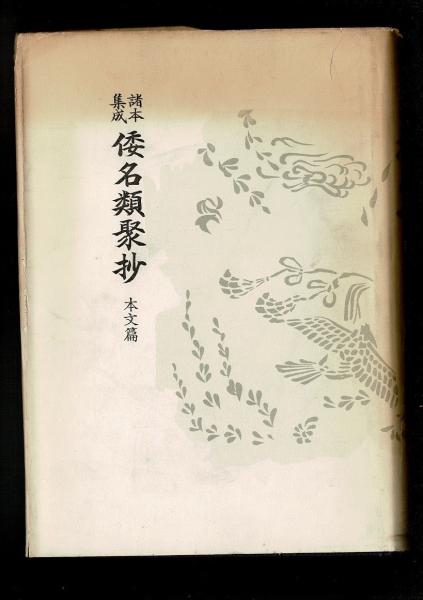 諸本
集成
倭名類聚抄
本文篇